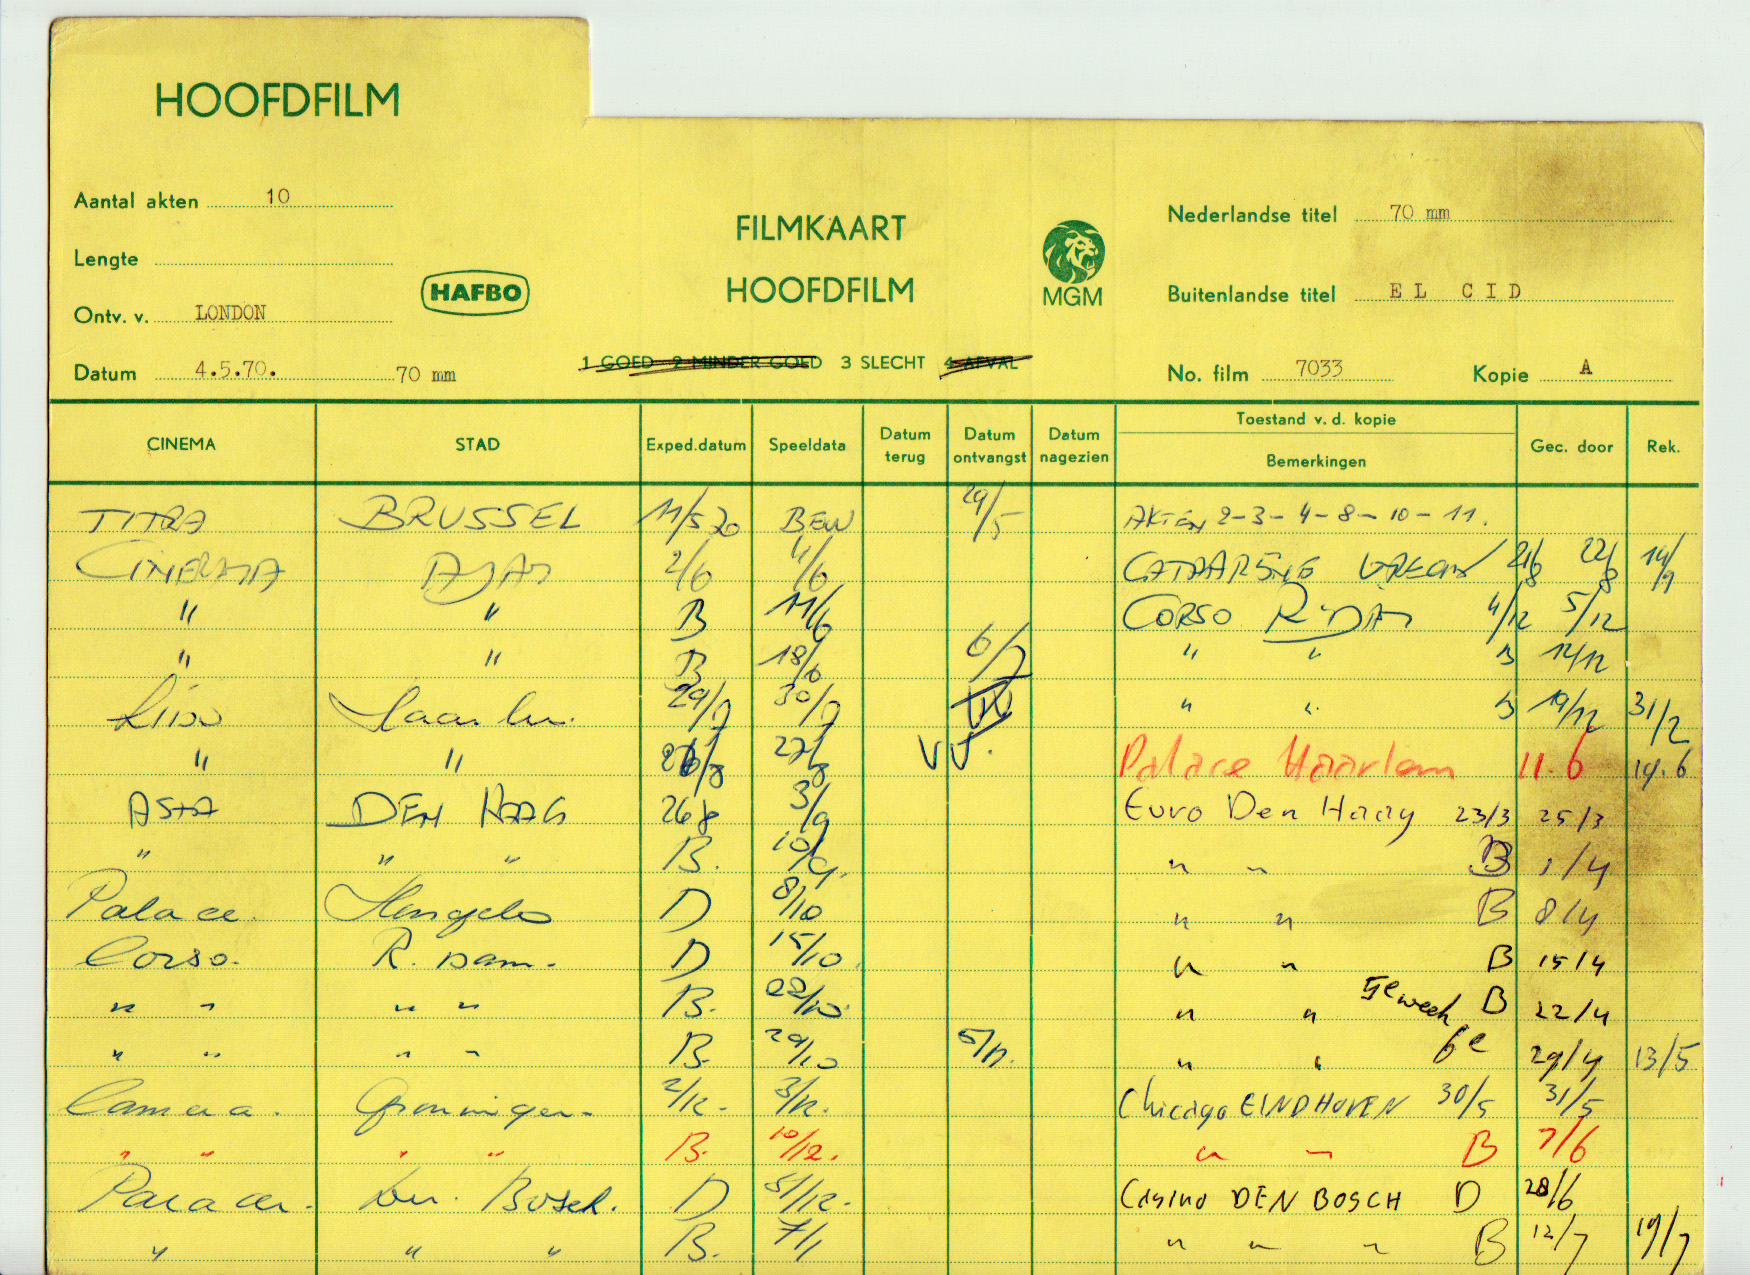 HOOFDFILM
Aantal akten 10
Lengte
Ontv. v. LONDON
Datum 4.5.70. 70 mm
HAFBO
FILMKAART
HOOFDFILM
MGM
1 GOED 2 MINDER GOED 3 SLECHT 4 AFVAL
Nederlandse titel 70 mm
Buitenlandse titel EL CID
No. film 7033 Kopie A
CINEMA STAD Exped.datum Speeldata Datum terug Datum ontvangst Datum nagezien Toestand v. d. kopie Bemerkingen Gec. door Rek.
TITRA BRUSSEL 11/5 70 BEW 29/5 AKTEN 2-3-4-8-10-11.
CINERAMA 2/6 4/6 CATHARIJNE 22/8 14/9
" " B 11/6 CORSO R'DAM 4/12 5/12
" " B 18/6 6/7 " " B 12/12
Haarlem. 29/7 30/7 " " B 19/12 31/2
" " 27/8 VV. Palace Haarlem 11.6 14.6
ASTA DEN HAAG 26/8 3/9 Euro Den Haag 23/3 25/3
" " " B. 10/9. " " B 1/4
Palace. Hengelo D 8/10 " " B 8/4
Corso. R.dam. D 15/10. " " B 15/4
" " " " B. 22/10. " " 5e week B 22/4
" " " " B. 29/10 5/11. " " 6e 29/4 13/5
Camera. Groningen. 2/12. 3/12. Chicago EINDHOVEN 30/5 31/5
" " " " B. 10/12. " " B 7/6
Den Bosch. D 31/12. Casino DEN BOSCH D 28/6
" " " B. 7/1 " " " B 12/7 19/7